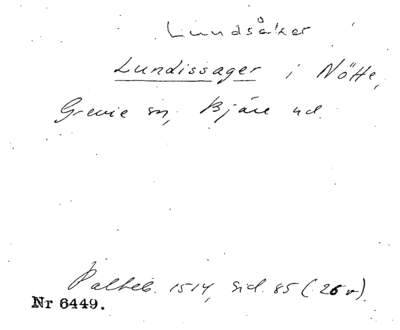 Lundsåker
Lundissager i Nötte,
Grevie sn, Bjäre hd.
Palteb. 1514, sid. 85 (26 v).
Nr 6449.